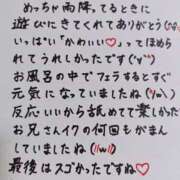 めっちゃ雨降ってるときに
遊びにきてくれてありがとう(¨)
いっぱい「かわいい♡」ってほめら
れてうれしかったです(´▽`)
お風呂の中でフェラするとすぐ
元気になっていましたね(¨)
反応いいから舐めてて楽しかった
お兄さんイクの何回もがまん
していましたね(〃ω〃)
最後はスゴかったですね♡